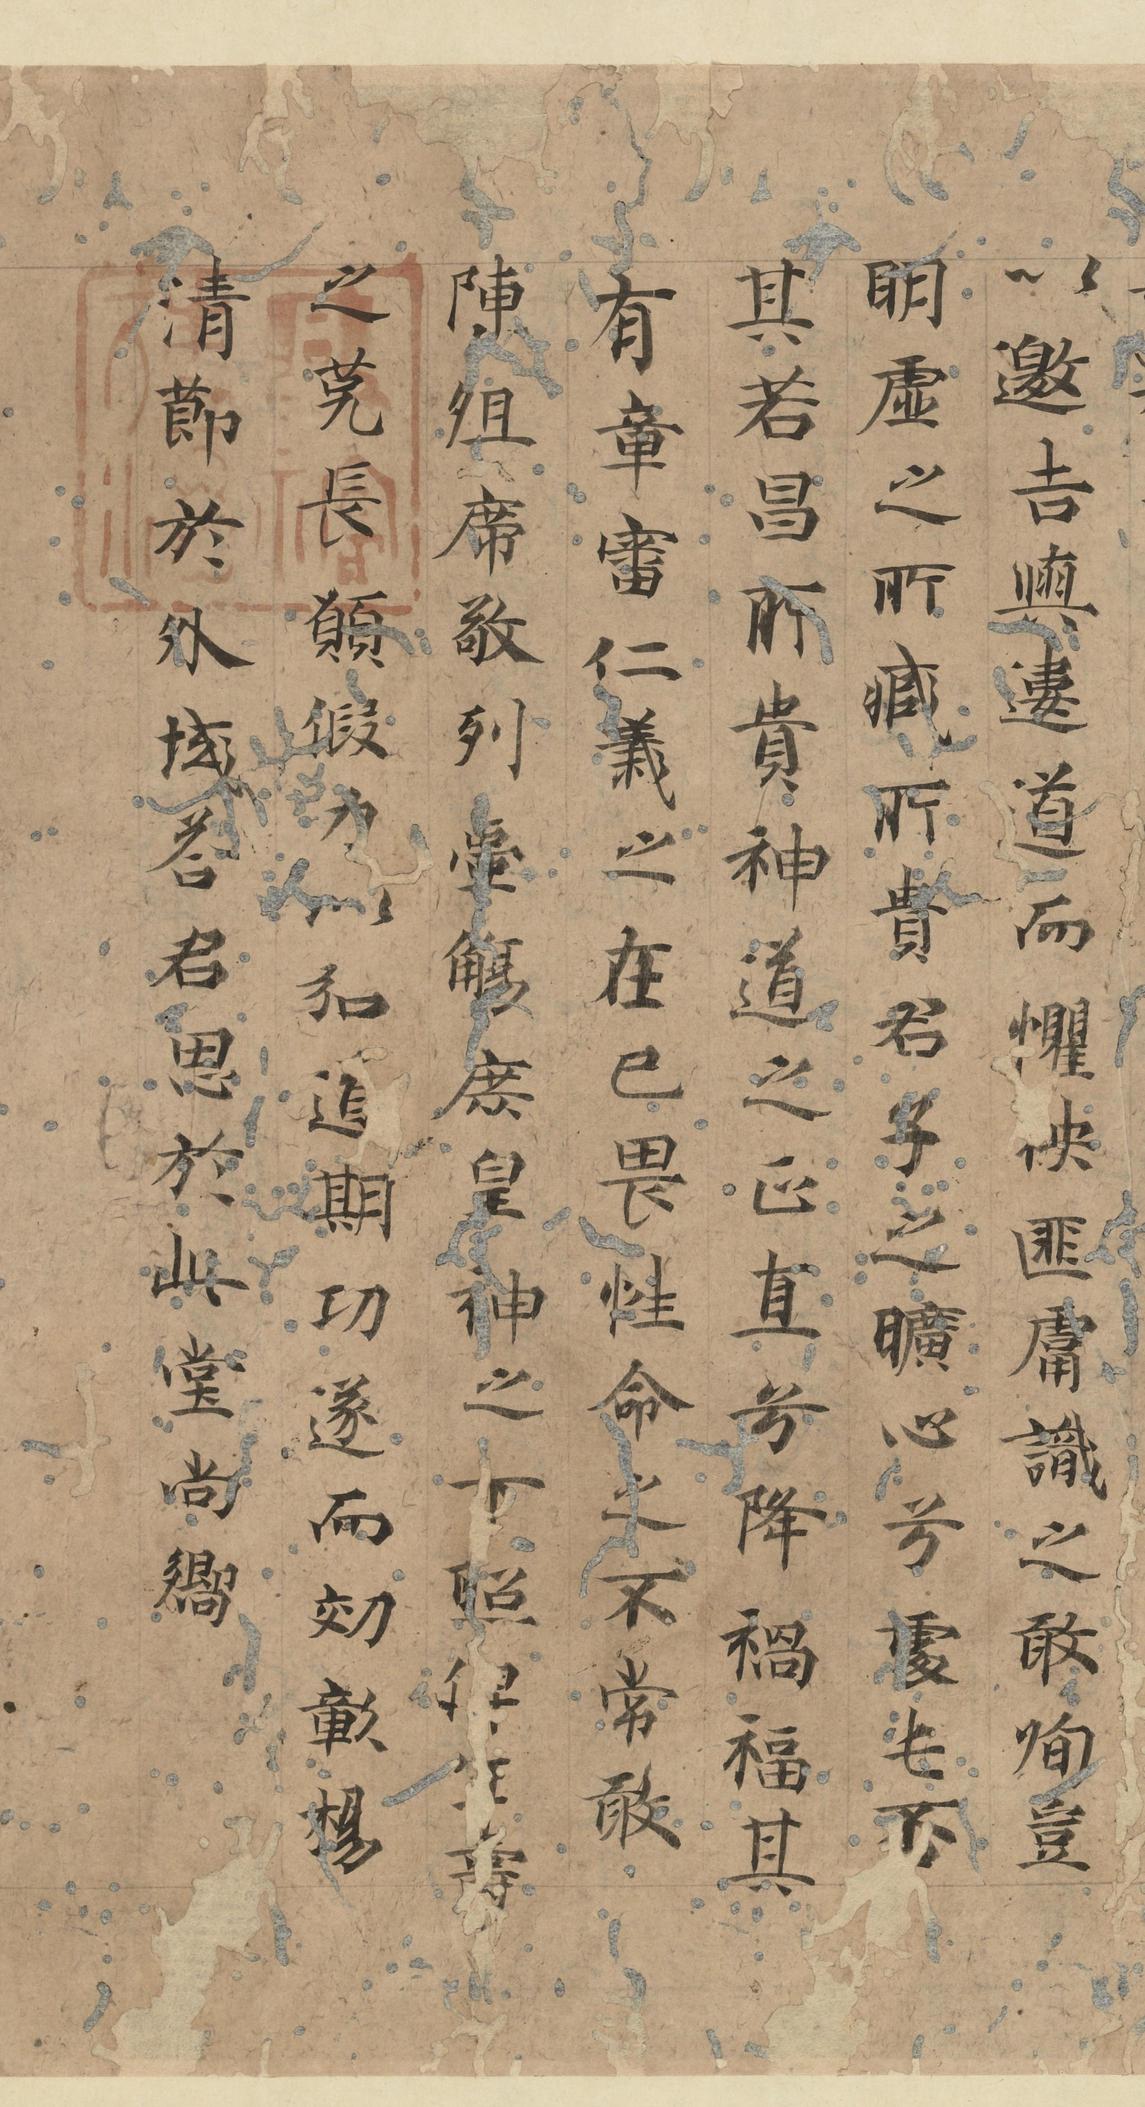 以邀吉興遘道而懼怏匪庸識之敢徇豈
明虛之所臧所貴君子之曠心兮處屯不
其若昌所貴神道之正直兮降禍福其
有章審仁義之在已畏性命之不常敢
陳俎席敬列壺觴庶皇神之下照保生壽
之莞長願假力以知追期功遂而効彰揚
清節於外域荅君恩於此堂尚饗